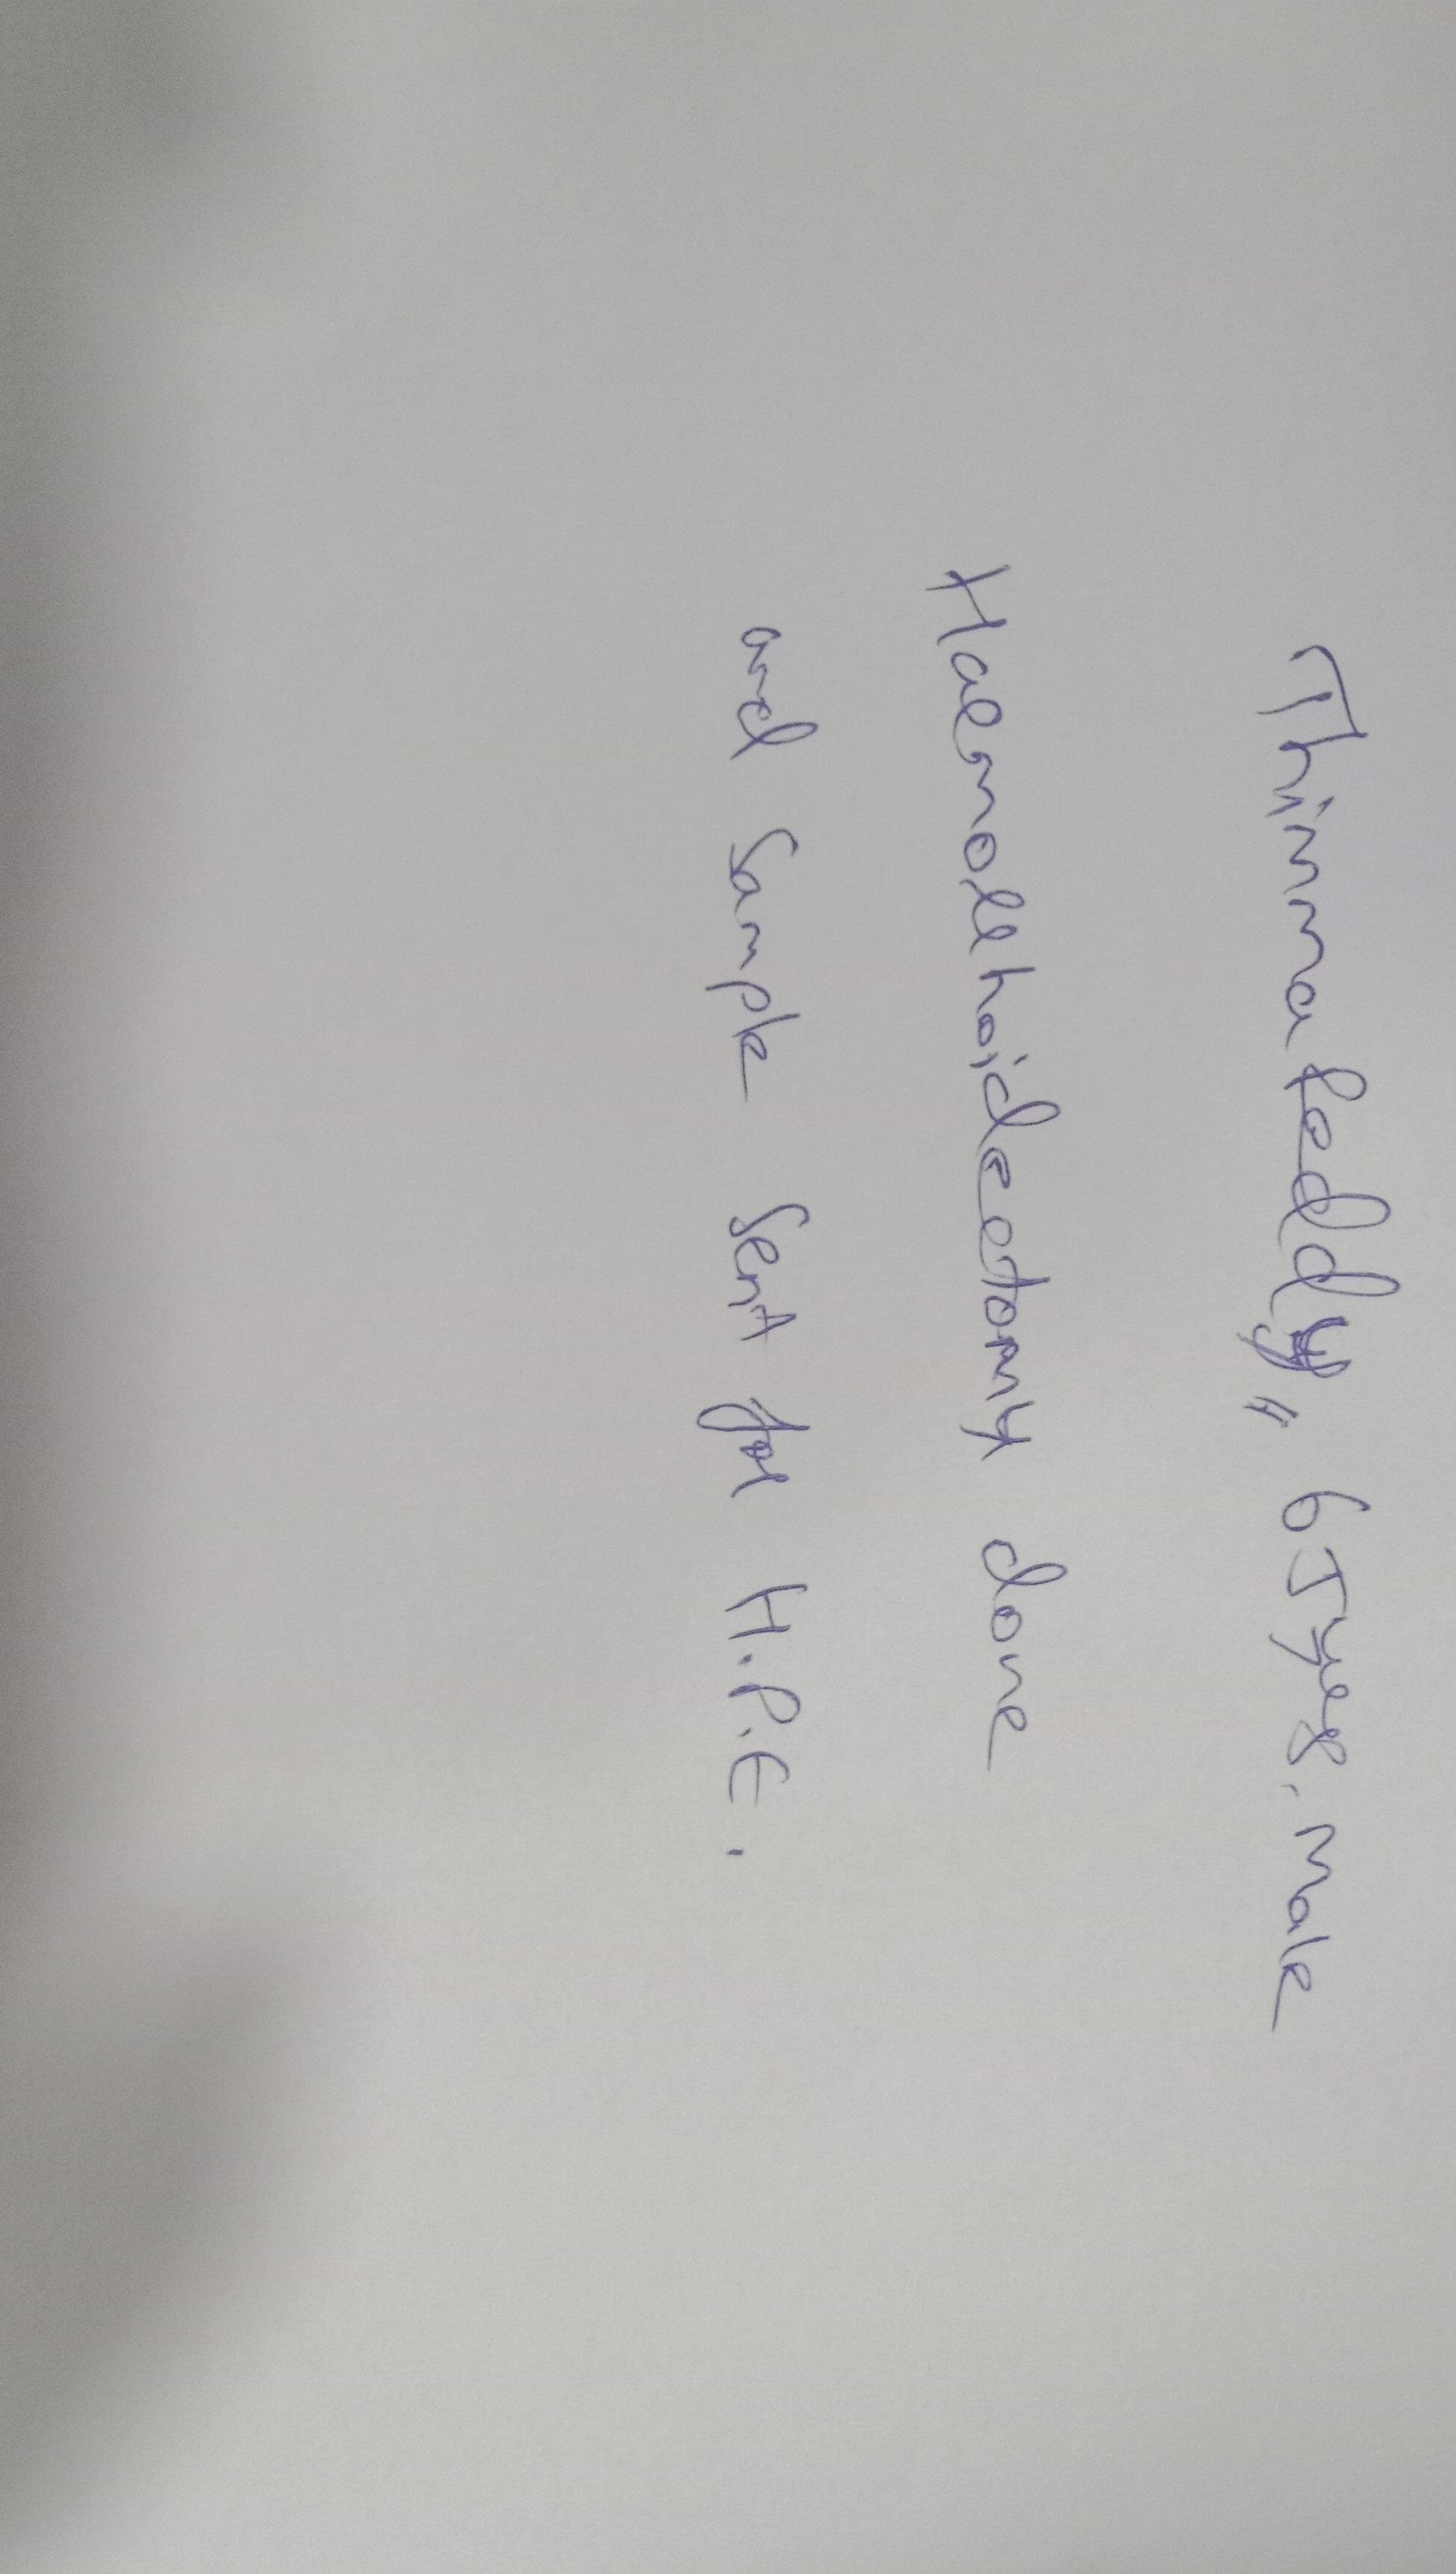 Thimma Reddy,, 65yrs. male
Haemorrhoidectomy done
and Sample Sent for H.P.E.